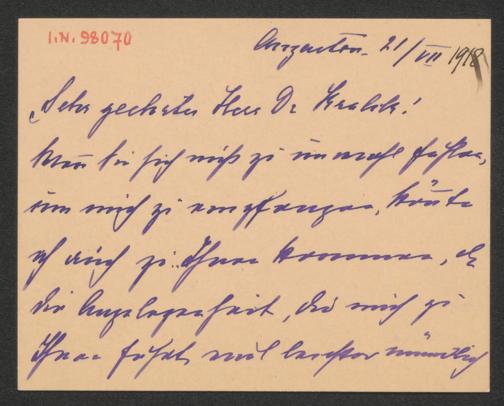 I.N. 98070
21/VII 1918
Sehr geehrter Herr Dr Kralik!
Wenn Sie sich nicht zu unwohl fühlen,
um mich zu empfangen, könnte
ich auch zu Ihnen kommen, da
die Angelegenheit, die mich zu
Ihnen führt, viel leichter mündlich